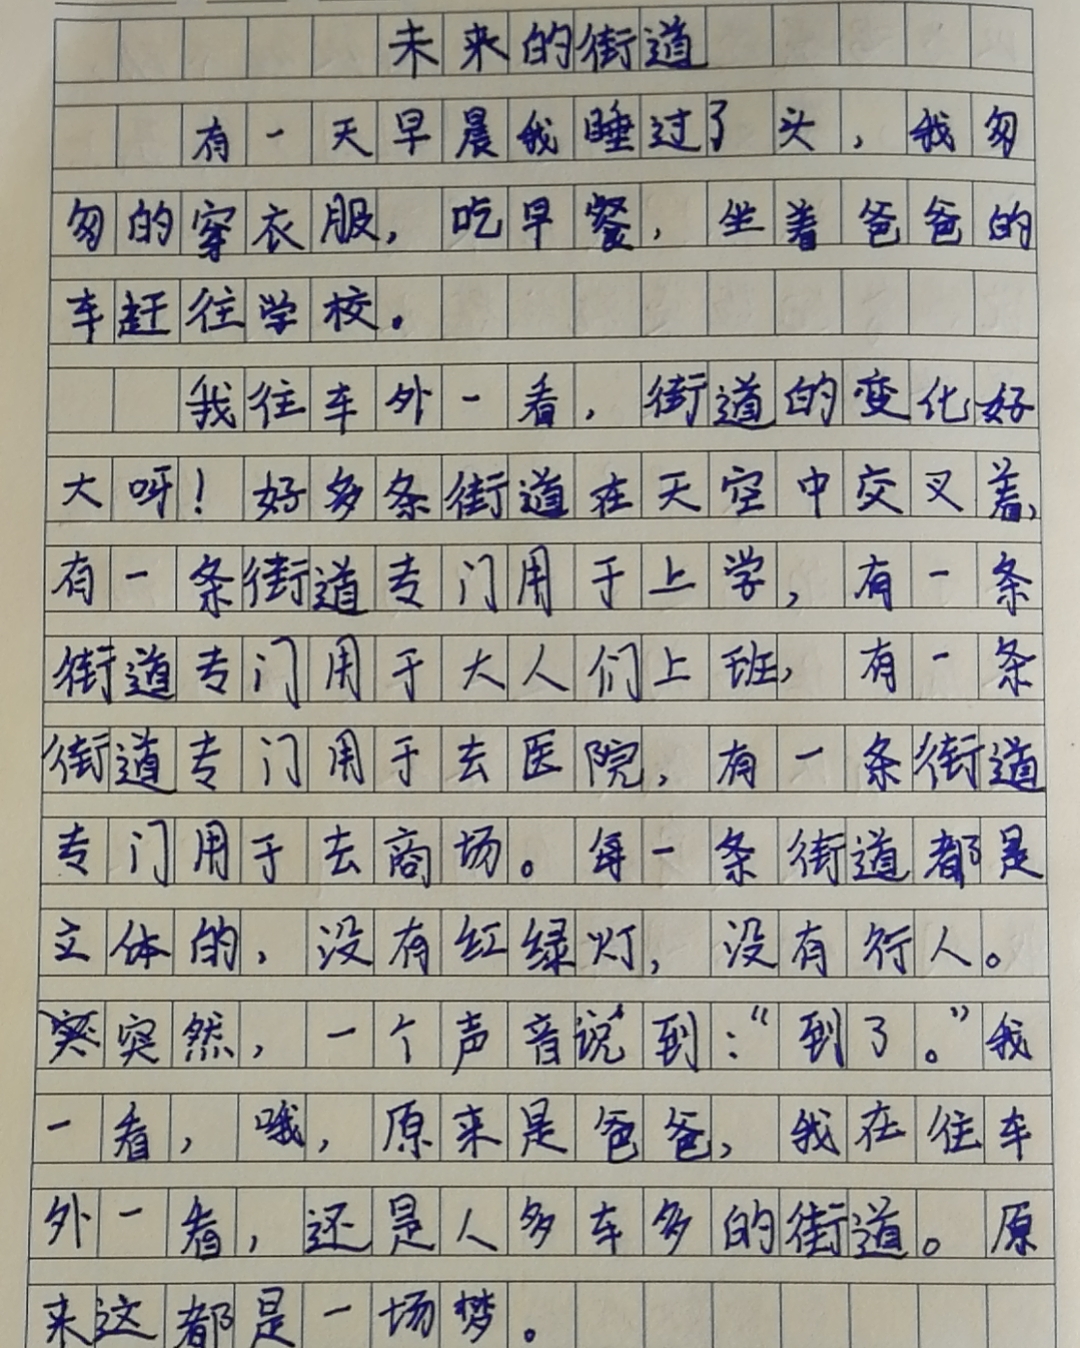 未来的街道
有一天早晨我睡过了头，我匆
匆的穿衣服，吃早餐，坐着爸爸的
车赶往学校。
我往车外一看，街道的变化好
大呀！好多条街道在天空中交叉着，
有一条街道专门用于上学，有一条
街道专门用于大人们上班，有一条
街道专门用于去医院，有一条街道
专门用于去商场。每一条街道都是
立体的，没有红绿灯，没有行人。
突然，一个声音说到：“到了。”我
一看，哦，原来是爸爸，我在往车
外一看，还是人多车多的街道。原
来这都是一场梦。